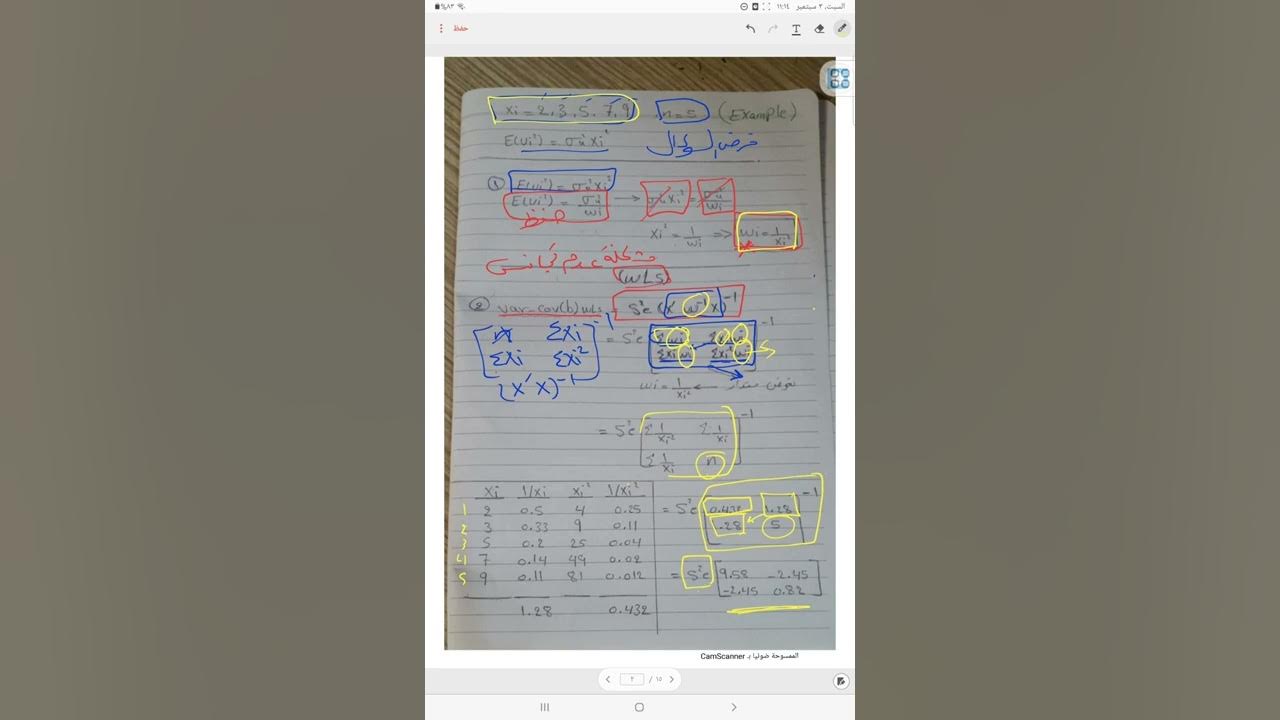 السبت، ٣ سبتمبر ١١:١٤
٪٨٣
حفظ
xi = 2, 3, 5, 7, 9 n = 5 (Example)
E(ui²) = σu² xi² فرض السؤال
① E(ui²) = σu² xi²
E(ui²) = σu²/wi → σu² xi² = σu²/wi
حفظ
xi² = 1/wi => wi = 1/xi²
مشكلة عدم تجانس
(WLS)
② var-cov(b)WLS = S²e (X' w⁻¹ X)⁻¹
[n Σxi
Σxi Σxi²]⁻¹
(X'X)⁻¹
= S²e [Σwi Σxiwi
Σxiwi Σxi²wi]⁻¹
wi = 1/xi² ←
= S²e [Σ1/xi² Σ1/xi
Σ1/xi n]⁻¹
xi 1/xi xi² 1/xi²
1 2 0.5 4 0.25
2 3 0.33 9 0.11
3 5 0.2 25 0.04
4 7 0.14 49 0.02
5 9 0.11 81 0.012
1.28 0.432
= S²e [0.432 1.28
1.28 5]⁻¹
= S²e [9.58 -2.45
-2.45 0.82]
الممسوحة ضوئيا بـ CamScanner
٢ / ١٥